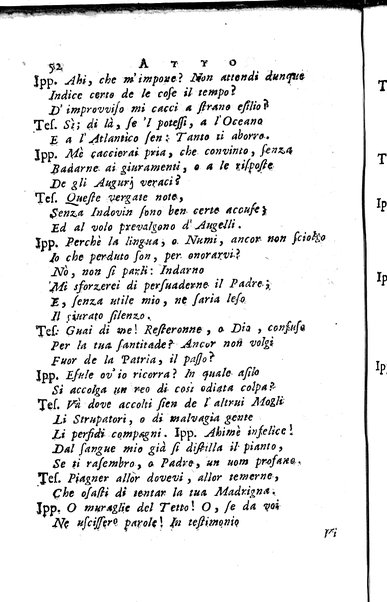 52 ATTO
Ipp. Ahi, che m'impone? Non attendi dunque
Indice certo de le cose il tempo?
D' improvviso mi cacci a strano esilio?
Tes. Sì; di là, se 'l potessi, a l'Oceano
E a l'Atlantico sen: Tanto ti aborro.
Ipp. Mè caccierai pria, che convinto, senza
Badarne ai giuramenti, o a le risposte
De gli Augurj veraci?
Tes. Queste vergate note,
Senza Indovin sono ben certe accuse;
Ed al volo prevalgono d'Augelli.
Ipp. Perchè la lingua, o Numi, ancor non sciolgo
Io che perduto son, per onorarvi?
Nò, non si parli: Indarno
Mi sforzerei di persuaderne il Padre;
E, senza utile mio, ne saria leso
Il giurato silenzo.
Tes: Guai di me! Resteronne, o Dio, confuso
Per la tua santitade? Ancor non volgi
Fuor de la Patria, il passo?
Ipp. Esule ov'io ricorra? In quale asilo
Si accolga un reo di così odiata colpa?
Tes. Và dove accolti sien de l'altrui Mogli
Li Strupatori, o di malvagia gente
Li perfidi compagni. Ipp. Ahimè infelice!
Dal sangue mio già si distilla il pianto,
Se ti rasembro, o Padre, un uom profano.
Tes. Piagner allor dovevi, allor temerne,
Che osasti di tentar la tua Madrigna.
Ipp. O muraglie del Tetto! O, se da voi
Ne uscissero parole! In testimonio
Vi
T
T
Ip
Ip
Ip